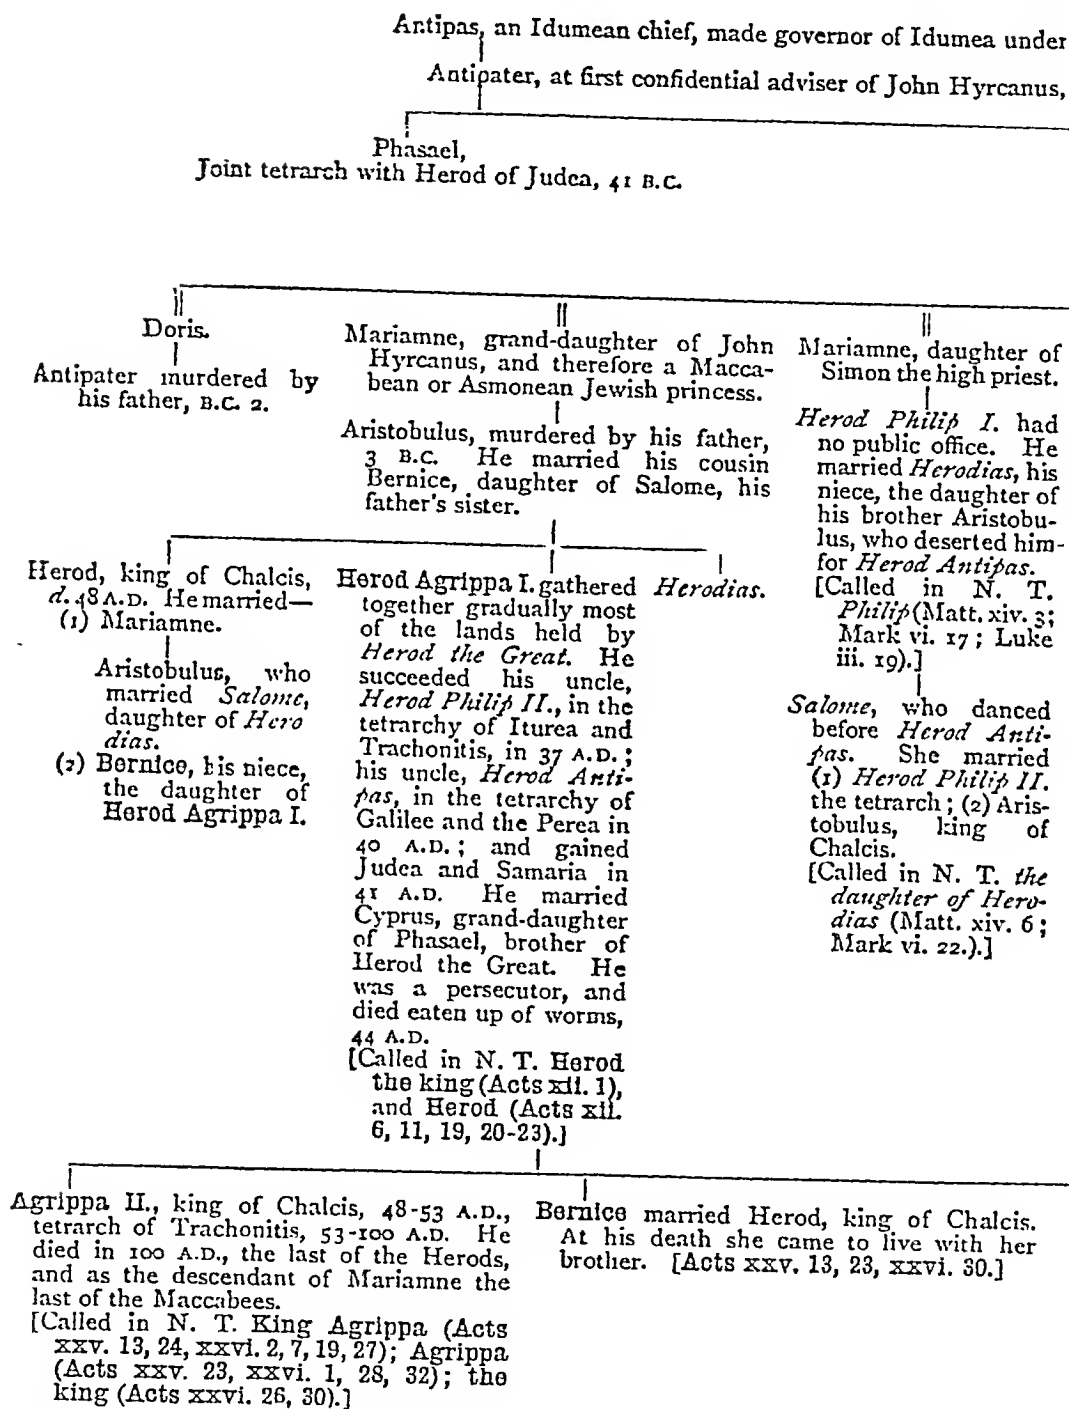 Antipas, an Idumean chief, made governor of Idumea under
Antipater, at first confidential adviser of John Hyrcanus,
Phasael,
Joint tetrarch with Herod of Judea, 41 B.C.
Doris.
Antipater murdered by
his father, B.C. 2.
Mariamne, grand-daughter of John
Hyrcanus, and therefore a Macca-
bean or Asmonean Jewish princess.
Aristobulus, murdered by his father,
3 B.C. He married his cousin
Bernice, daughter of Salome, his
father's sister.
Mariamne, daughter of
Simon the high priest.
Herod Philip I. had
no public office. He
married Herodias, his
niece, the daughter of
his brother Aristobu-
lus, who deserted him
for Herod Antipas.
[Called in N. T.
Philip (Matt. xiv. 3;
Mark vi. 17; Luke
iii. 19).]
Salome, who danced
before Herod Anti-
pas. She married
(1) Herod Philip II.
the tetrarch; (2) Aris-
tobulus, king of
Chalcis.
[Called in N. T. the
daughter of Hero-
dias (Matt. xiv. 6;
Mark vi. 22.).]
Herod, king of Chalcis,
d. 48 A.D. He married—
(1) Mariamne.
Aristobulus, who
married Salome,
daughter of Hero
dias.
(2) Bernice, his niece,
the daughter of
Herod Agrippa I.
Herod Agrippa I. gathered
together gradually most
of the lands held by
Herod the Great. He
succeeded his uncle,
Herod Philip II., in the
tetrarchy of Iturea and
Trachonitis, in 37 A.D.;
his uncle, Herod Anti-
pas, in the tetrarchy of
Galilee and the Perea in
40 A.D.; and gained
Judea and Samaria in
41 A.D. He married
Cyprus, grand-daughter
of Phasael, brother of
Herod the Great. He
was a persecutor, and
died eaten up of worms,
44 A.D.
[Called in N. T. Herod
the king (Acts xii. 1),
and Herod (Acts xii.
6, 11, 19, 20-23).]
Herodias.
Agrippa II., king of Chalcis, 48-53 A.D.,
tetrarch of Trachonitis, 53-100 A.D. He
died in 100 A.D., the last of the Herods,
and as the descendant of Mariamne the
last of the Maccabees.
[Called in N. T. King Agrippa (Acts
xxv. 13, 24, xxvi. 2, 7, 19, 27); Agrippa
(Acts xxv. 23, xxvi. 1, 28, 32); the
king (Acts xxvi. 26, 30).]
Bernice married Herod, king of Chalcis.
At his death she came to live with her
brother. [Acts xxv. 13, 23, xxvi. 30.]